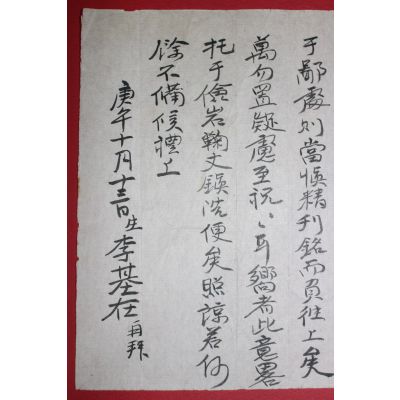 于鄙處則當慎精刊銘而負往上矣
萬勿置疑慮至祝〻耳嚮者此意略
托于儉岩鞠丈鍈洗便矣照諒若何
餘不備候禮上
庚午十月十三日生李基在再拜